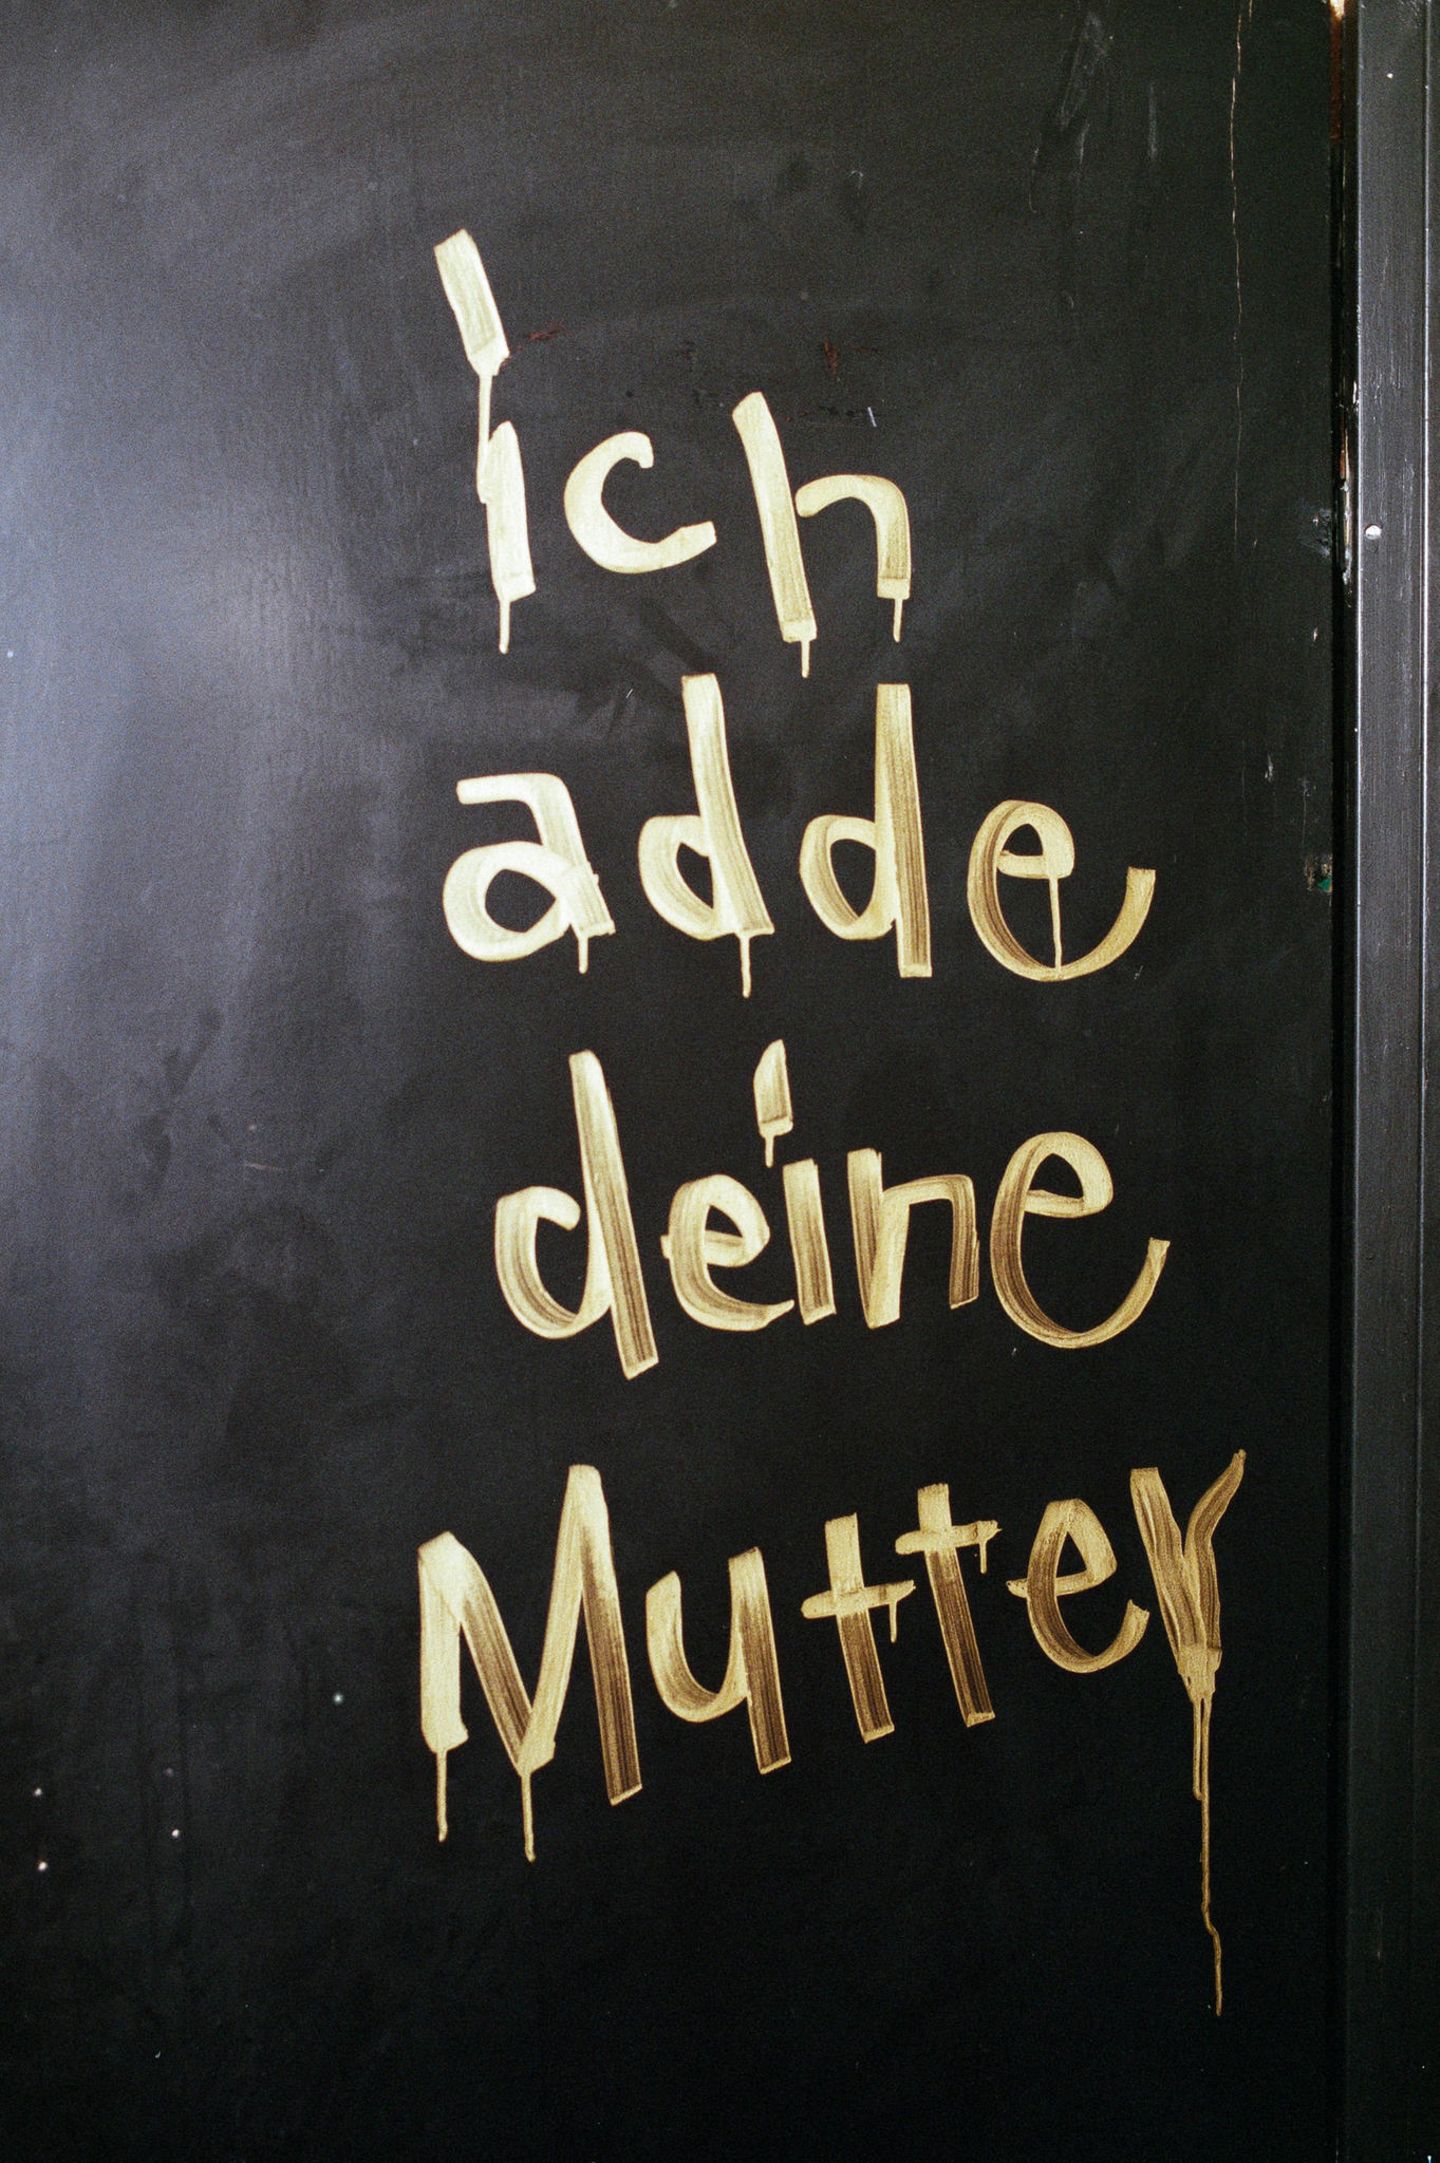 Ich
adde
deine
Mutter